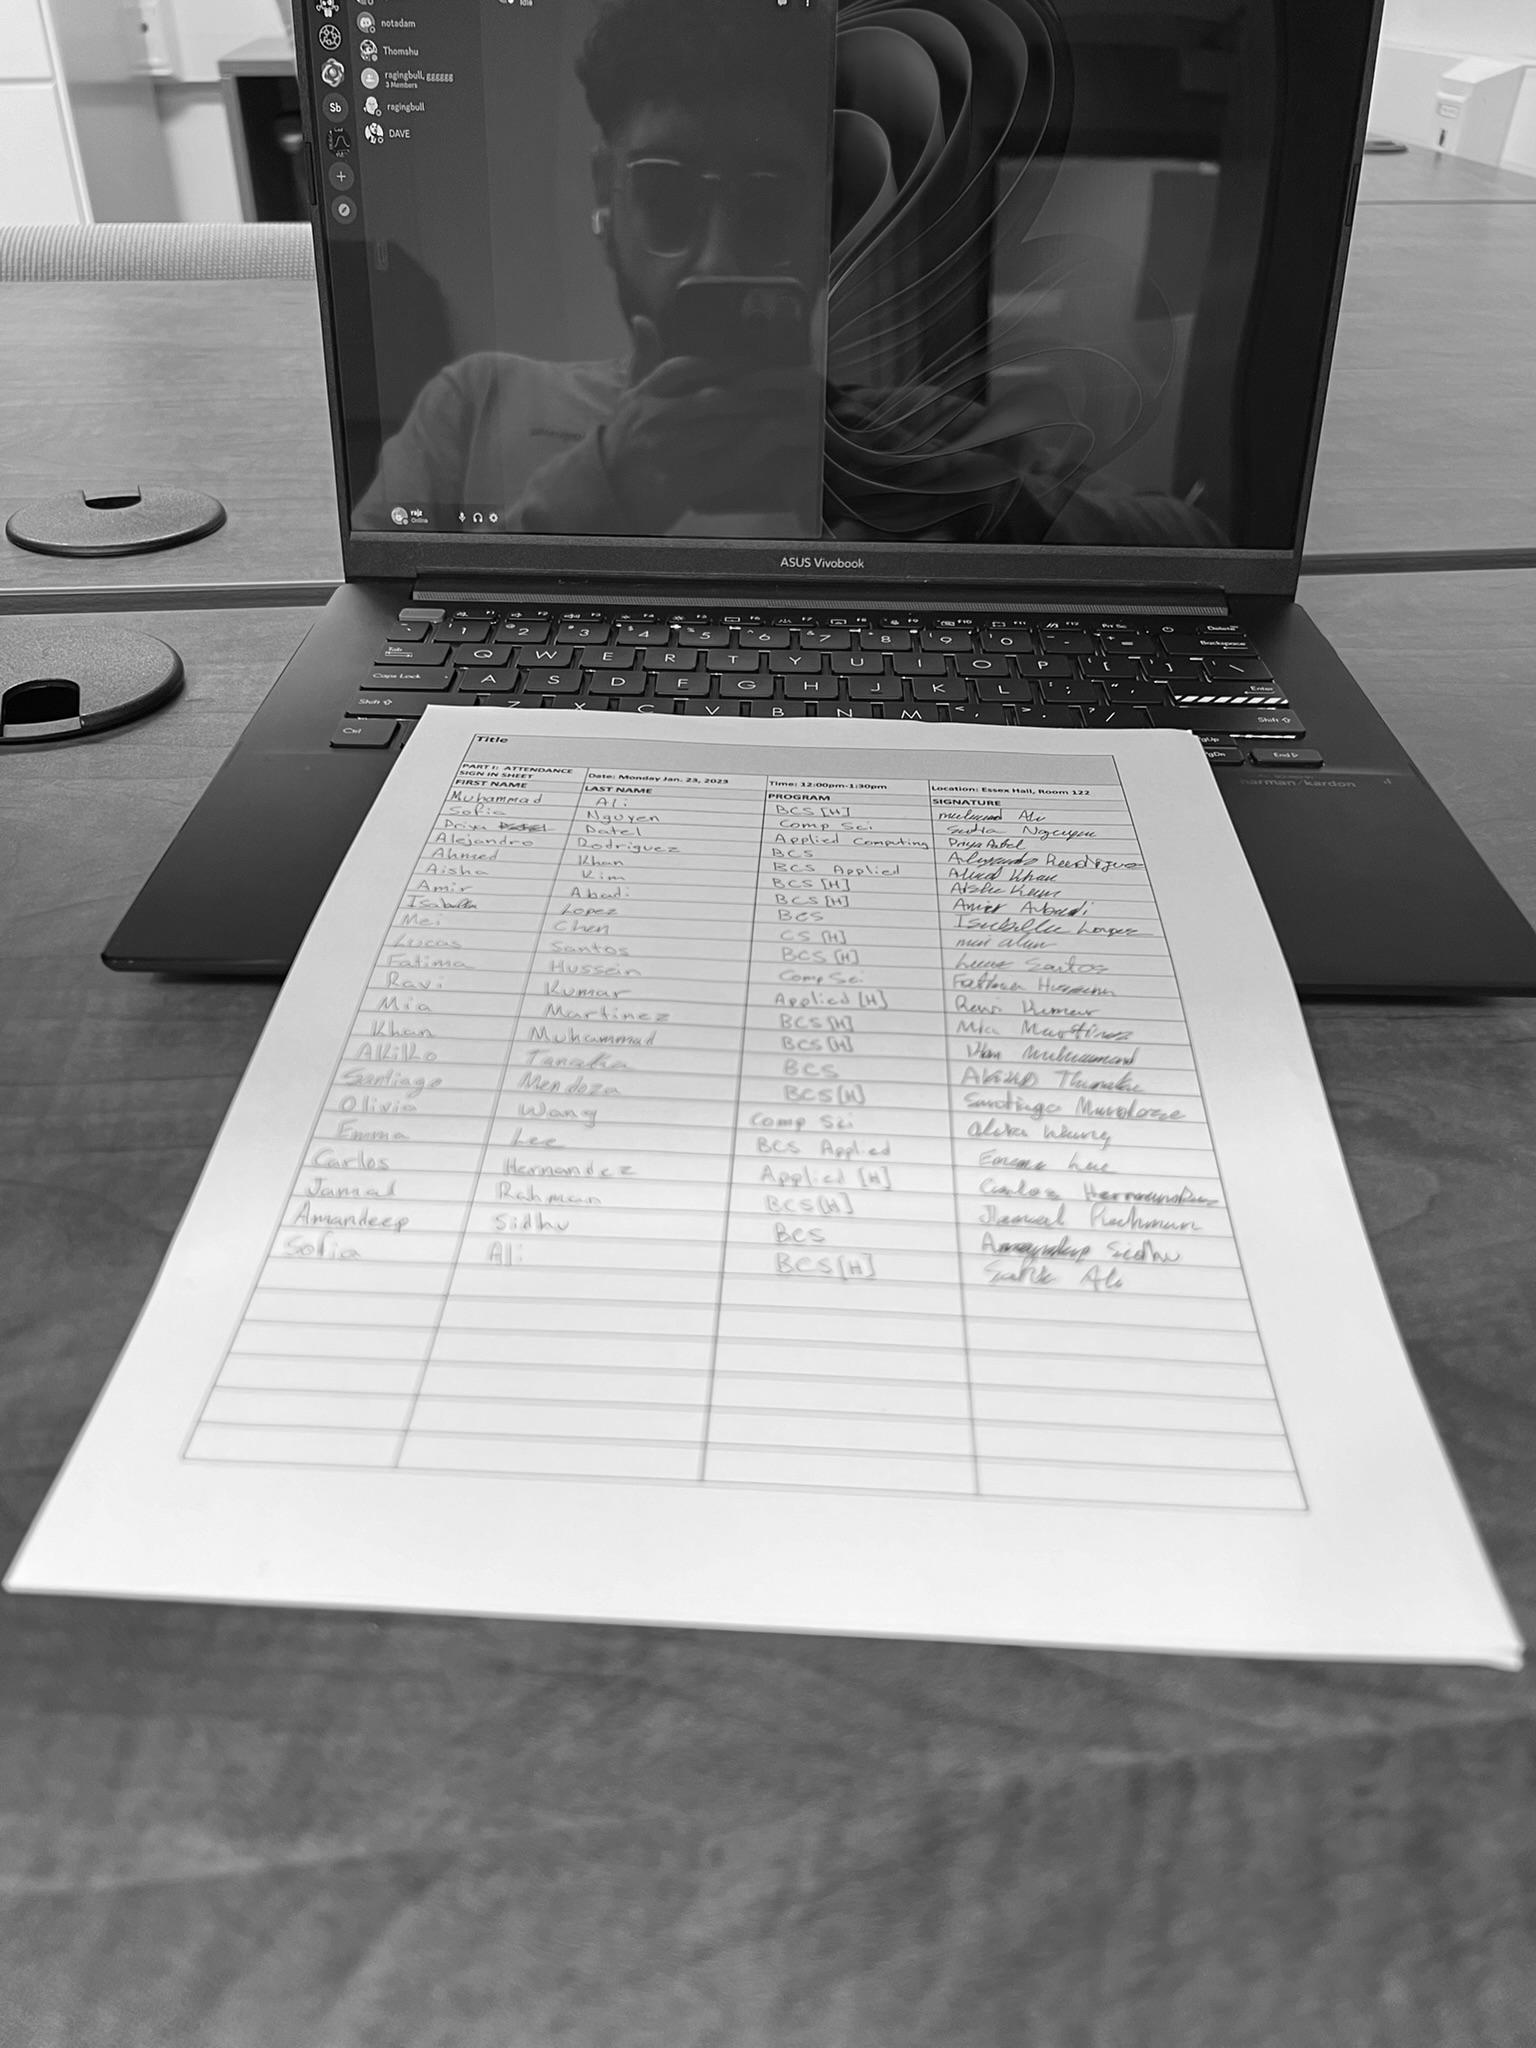 notadam
Idle
Thomshu
ragingbull, gggggg
3 Members
Sb
ragingbull
DAVE
rajz
Online
ASUS Vivobook
F1 F2 F3 F4 F5 F6 F7 F8 F9 F10 F11 F12 Prt Sc Delete
1 2 3 4 5 6 7 8 9 0 - = Backspace
Tab Q W E R T Y U I O P [ ] \
Caps Lock A S D F G H J K L ; ' Enter
Shift Z X C V B N M < > / Shift
Ctrl PgUp
PgDn End
harman/kardon
Title
PART I: ATTENDANCE SIGN IN SHEET Date: Monday Jan. 23, 2023 Time: 12:00pm-1:30pm Location: Essex Hall, Room 122
FIRST NAME LAST NAME PROGRAM SIGNATURE
Muhammad Ali BCS [H] Ali
Sofia Nguyen Comp Sci Nguyen
Priya Patel Applied Computing Priya Patel
Alejandro Rodriguez BCS Alejandro Rodriguez
Ahmed Khan BCS Applied Ahmed Khan
Aisha Kim BCS [H] Aisha Kim
Amir Abadi BCS [H] Amir Abadi
Isabella Lopez BCS Isabella Lopez
Mei Chen CS [H] Mei Chen
Lucas Santos BCS [H] Lucas Santos
Fatima Hussein Comp Sci Fatima Hussein
Ravi Kumar Applied [H] Ravi Kumar
Mia Martinez BCS [H] Mia Martinez
Khan Muhammad BCS [H] Khan Muhammad
Akiko Tanaka BCS Akiko Tanaka
Santiago Mendoza BCS [H] Santiago Mendoza
Olivia Wang Comp Sci Olivia Wang
Emma Lee BCS Applied Emma Lee
Carlos Hernandez Applied [H] Carlos Hernandez
Jamal Rahman BCS [H] Jamal Rahman
Amandeep Sidhu BCS Amandeep Sidhu
Sofia Ali BCS [H] Sofia Ali